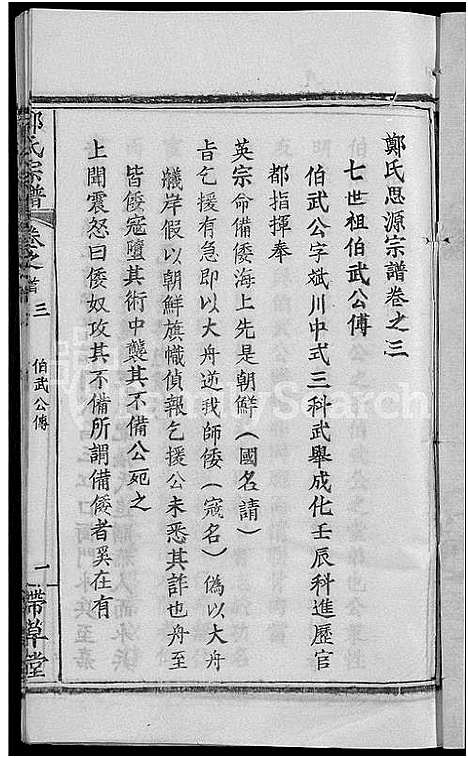 鄭氏思源宗譜卷之三
七世祖伯武公傳
伯武公字斌川中式三科武舉成化壬辰科進歷官
都指揮奉
英宗命備倭海上先是朝鮮（國名請）
旨乞援有急即以大舟逆我師倭（寇名）偽以大舟
艤岸假以朝鮮旗幟偵報乞援公未悉其詐也舟至
皆倭寇墮其術中襲其不備公死之
上聞震怒曰倭奴攻其不備所謂備倭者奚在有
鄭氏宗譜
卷之首
三
伯武公傳
一
帶草堂
FamilySearch